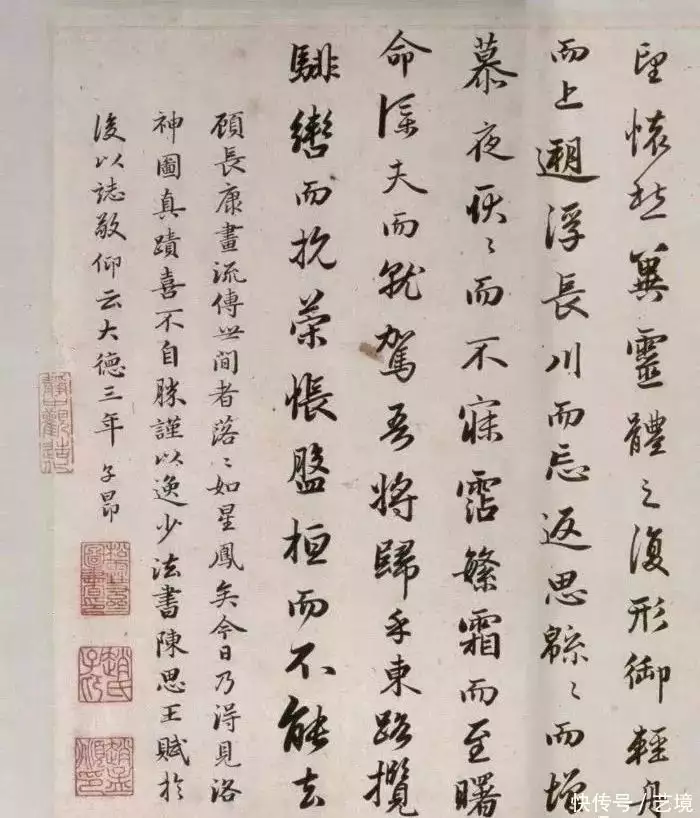 望懷愁冀靈體之復形御輕舟
而上遡浮長川而忘返思緜〻而增
慕夜耿〻而不寐霑繁霜而至曙
命僕夫而就駕吾將歸乎東路攬
騑轡而抗策悵盤桓而不能去
顧長康畫流傳世間者落〻如星鳳矣今日乃得見洛
神圖真蹟喜不自勝謹以逸少法書陳思王賦於
後以誌敬仰云大德三年 子昂
趙孟頫印
快传号/艺境